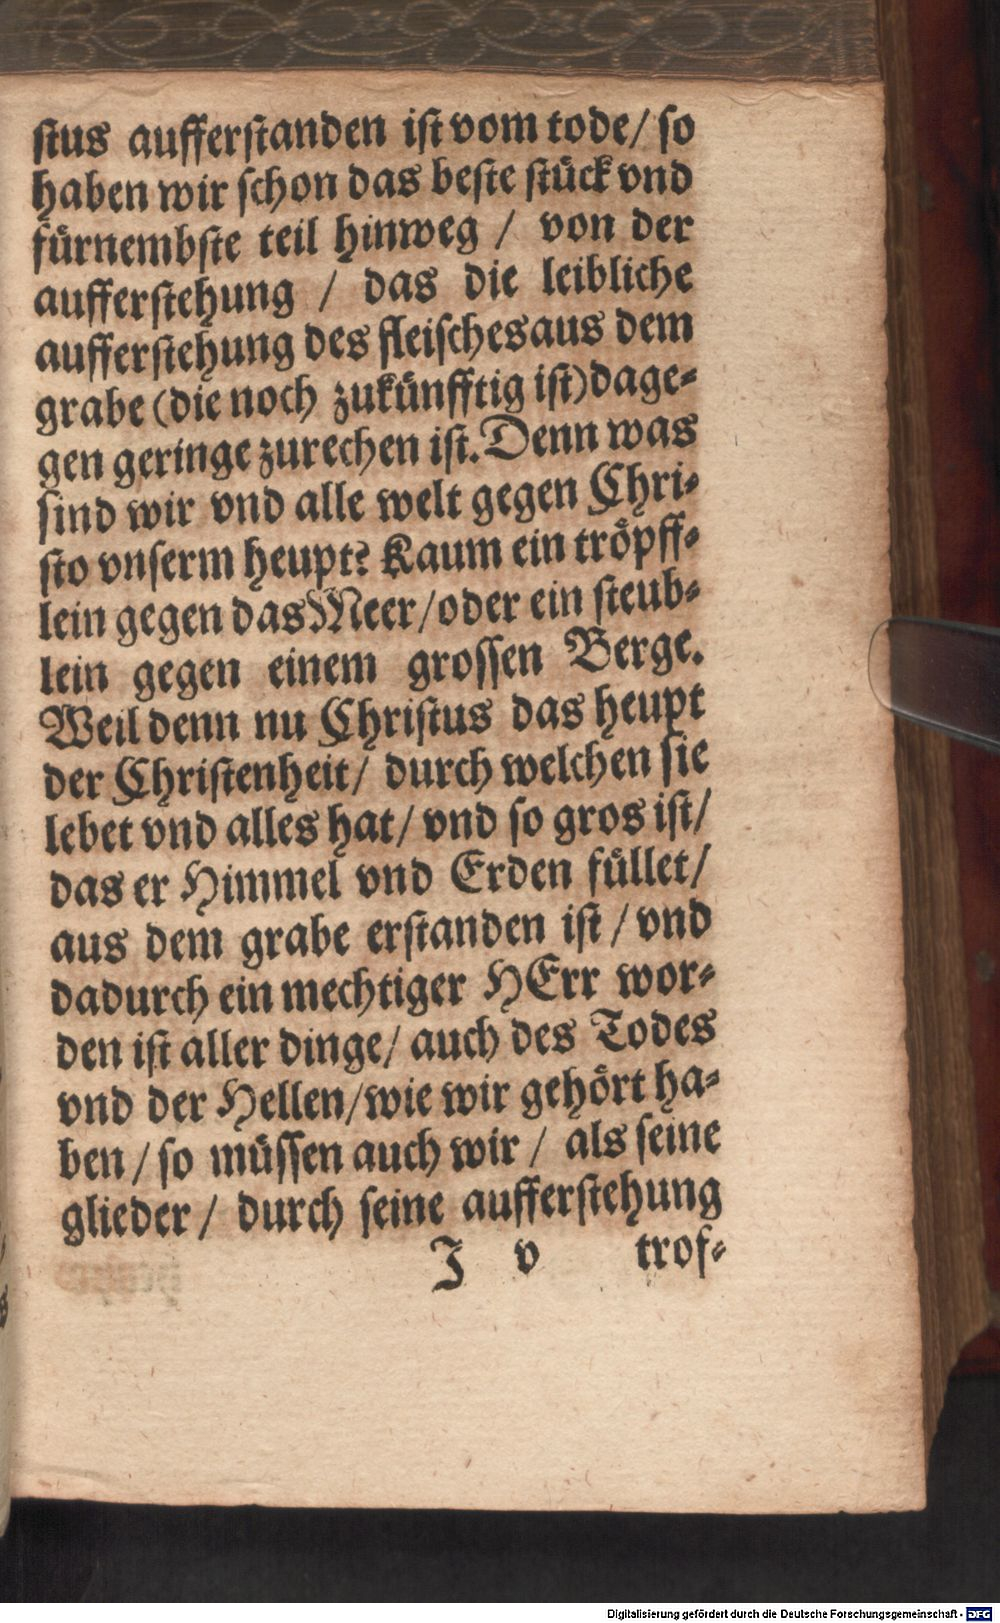 stus aufferstanden ist vom tode/ so
haben wir schon das beste stück vnd
fürnembste teil hinweg / von der
aufferstehung / das die leibliche
aufferstehung des fleisches aus dem
grabe (die noch zukünfftig ist) dage-
gen geringe zurechen ist. Denn was
sind wir vnd alle welt gegen Chri-
sto vnserm heupt? Kaum ein tröpff-
lein gegen das Meer/ oder ein steub-
lein gegen einem grossen Berge.
Weil denn nu Christus das heupt
der Christenheit/ durch welchen sie
lebet vnd alles hat/ vnd so gros ist/
das er Himmel vnd Erden füllet/
aus dem grabe erstanden ist / vnd
dadurch ein mechtiger HErr wor-
den ist aller dinge/ auch des Todes
vnd der Hellen/ wie wir gehört ha-
ben / so müssen auch wir / als seine
glieder / durch seine aufferstehung
J v trof-
Digitalisierung gefördert durch die Deutsche Forschungsgemeinschaft - DFG